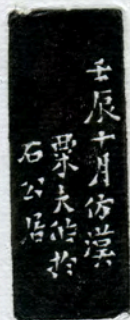 壬辰十月仿漢
栗夫作於
石公居